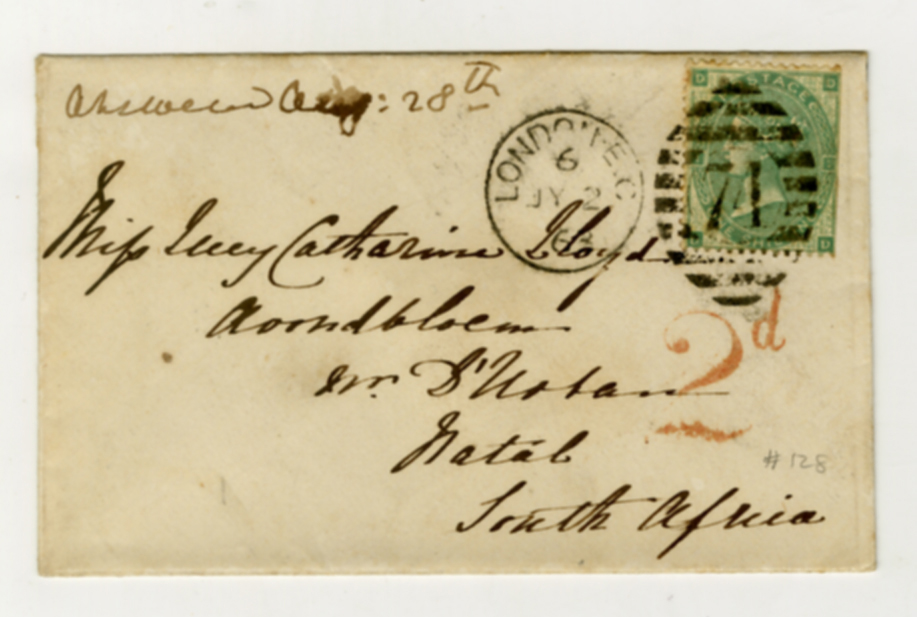 Answered Aug: 28th
LONDON E.C
6
JY 2
6
71
D POSTAGE
D
2d
Miss Lucy Catharine Lloyd
Avondbloem
nr. D'Urban
Natal
South Africa
#128